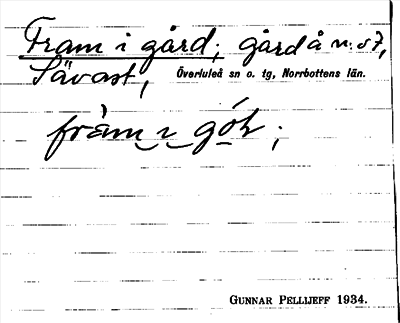 Fram i gård; gård å n:o 7,
Sävast, Överluleå sn o. tg, Norrbottens län.
fràm ı gó
GUNNAR PELLIJEFF 1934.